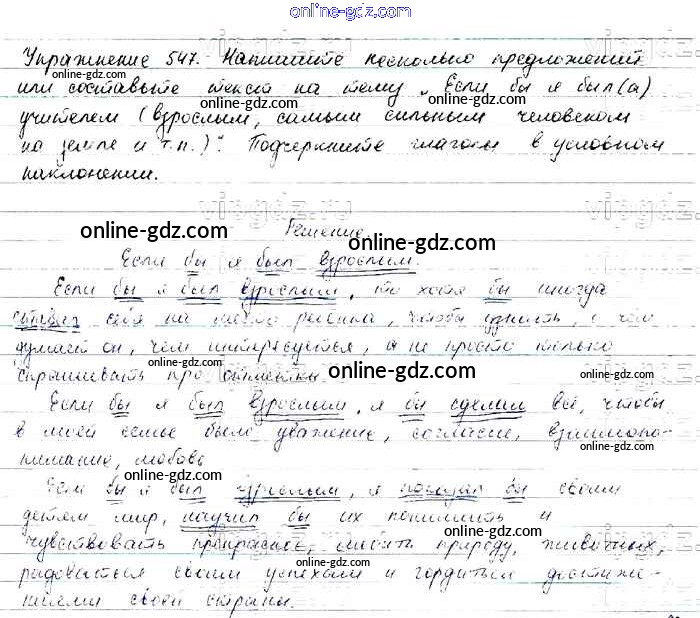 online-gdz.com
Упражнение 547. Напишите несколько предложений
или составьте текст на тему „Если бы я был(а)
учителем (взрослым, самым сильным человеком
на земле и т.п.)". Подчеркните глаголы в условном
наклонении.
Решение.
Если бы я был взрослым.
Если бы я был взрослым, то хотя бы иногда
ставил себя на место ребёнка, чтобы узнать, о чём
думает он, чем интересуется, а не просто только
спрашивать про отметки.
Если бы я был взрослым, я бы сделал всё, чтобы
в моей семье было уважение, согласие, взаимопо-
нимание, любовь
Если бы я был взрослым, я показал бы своим
детям мир, научил бы их понимать и
чувствовать прекрасное, любить природу, животных,
радоваться своим успехам и гордиться достиже-
ниями своей страны.